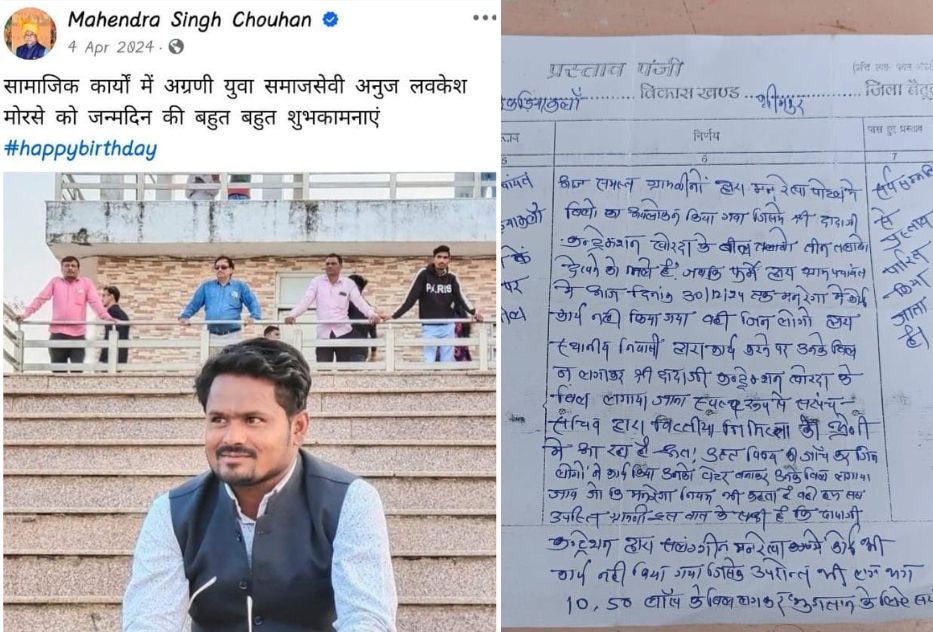 Mahendra Singh Chouhan
4 Apr 2024
सामाजिक कार्यों में अग्रणी युवा समाजसेवी अनुज लवकेश
मोरसे को जन्मदिन की बहुत बहुत शुभकामनाएं
#happybirthday
PARIS
प्रस्ताव पंजी
विकास खण्ड भीमपुर जिला बैतूल
निर्णय
पास हुए प्रस्ताव
6 7
आज समस्त ग्रामीणों द्वारा मनरेगा
बिलो का अवलोकन किया गया जिसमे श्री दादाजी
कन्ट्रेक्शन के
देखने को मिले है। जबकि फर्म द्वारा ग्राम पंचायत
मे आज दिनांक 30/12/24 तक मनरेगा मे कोई
कार्य नही किया गया वही जिन लोगो द्वारा
स्थानीय निवासी द्वारा कार्य करने पर उनके बिल
न लगाकर श्री दादाजी कन्ट्रेक्शन के
बिल लगाया जाना स्पष्ट रूप से सरपंच
सचिव द्वारा वित्तीय की श्रेणी
मे आ रहा है अतः उक्त विषय की जाँच कर जिन
लोगो ने कार्य किया उनका बनाकर उनके बिल लगाया
जाय जो कि मनरेगा नियम भी कहता है वही हम सब
उपस्थित ग्रामीण इस बात के साक्षी है कि दादाजी
कन्ट्रेक्शन द्वारा मनरेगा कार्य कोई भी
कार्य नही किया गया उपरान्त भी लग भग
10.50 लाख के बिल लगाकर भुगतान के लिये
सर्वसम्मति
से
प्रस्ताव
पारित
किया
जाता
है।